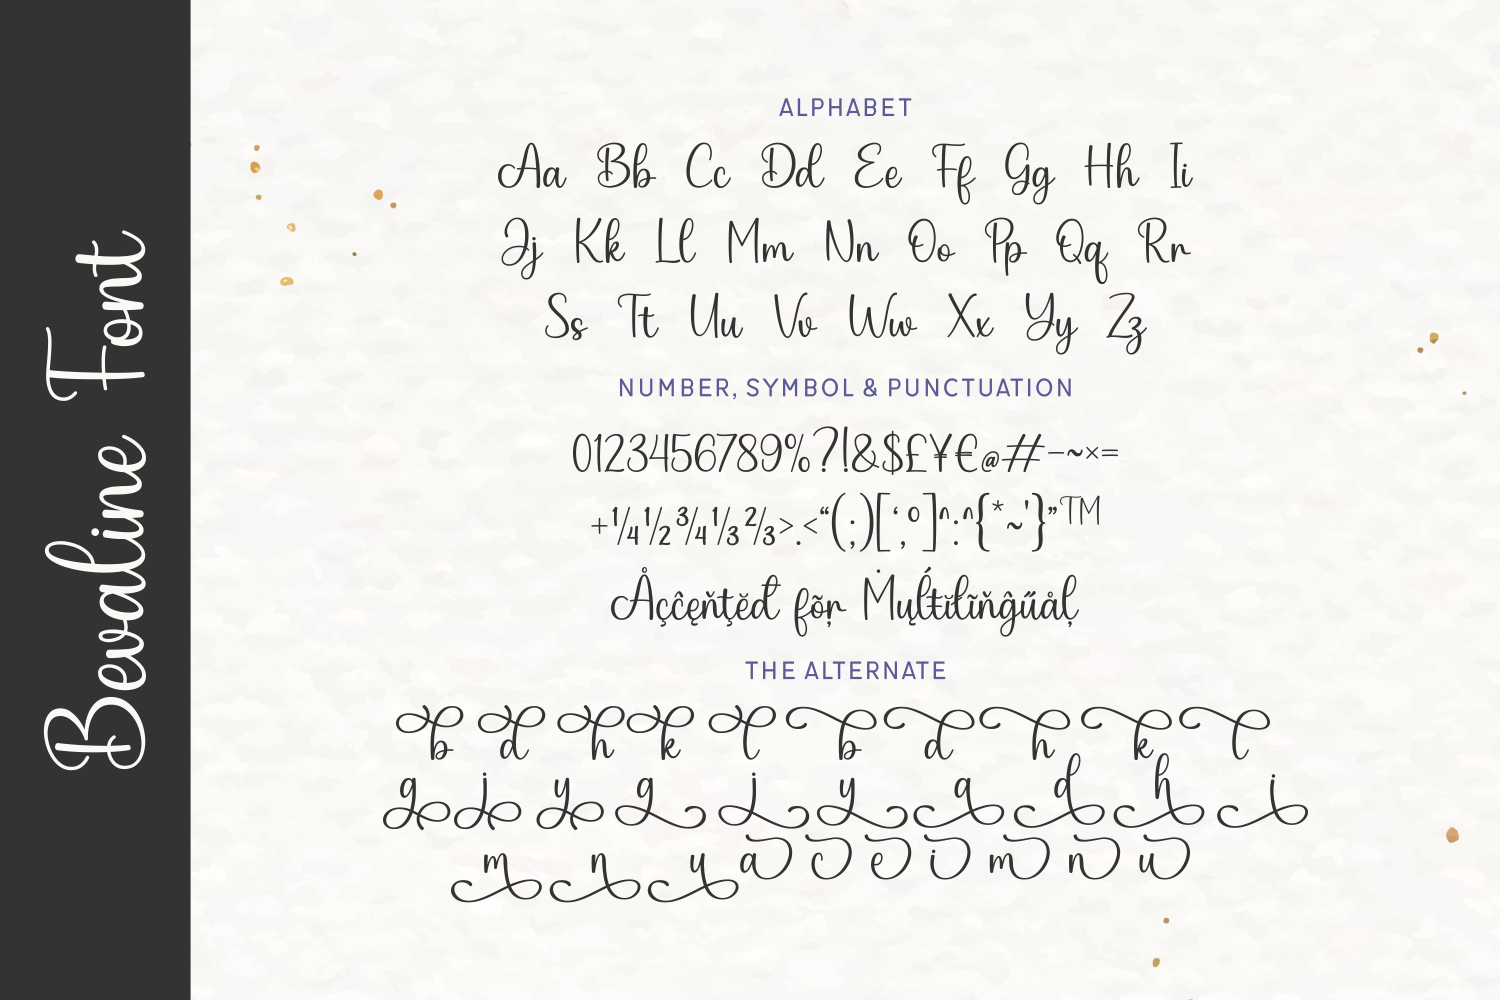 Bevaline Font
ALPHABET
Aa Bb Cc Dd Ee Ff Gg Hh Ii
Jj Kk Ll Mm Nn Oo Pp Qq Rr
Ss Tt Uu Vv Ww Xx Yy Zz
NUMBER, SYMBOL & PUNCTUATION
0123456789%?!&$£¥€@#–~×=
+¼½¾⅓⅔>.<“(;)[‘,º]^:^{*~'}”™
Åçĉęňţĕđ fõŗ Ṁųĺŧĭłĩňĝűåļ
THE ALTERNATE
b d h k l b d h k l
g j y g j y q d h i
m n u a c e i m n u